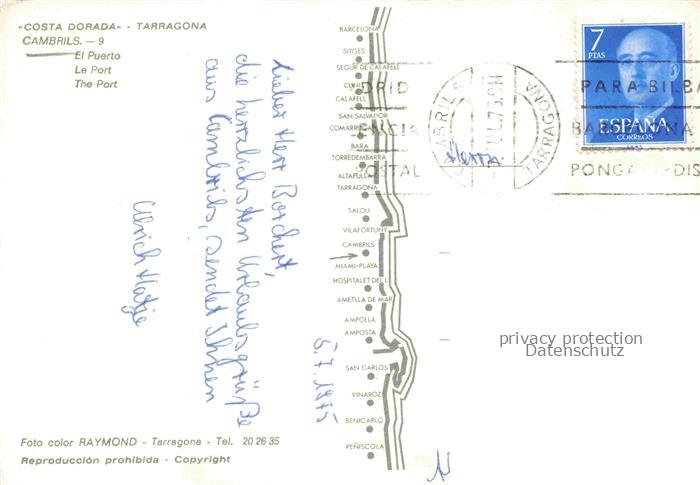 «COSTA DORADA» - TARRAGONA
CAMBRILS. — 9
El Puerto
Le Port
The Port
BARCELONA
SITGES
SEGUR DE CALAFELL
CALAFELL
SAN SALVADOR
COMARRUGA
BARA
TORREDEMBARRA
ALTAFULLA
TARRAGONA
SALOU
VILAFORTUNY
CAMBRILS
MIAMI-PLAYA
HOSPITALET DEL I.
AMETLLA DE MAR
AMPOLLA
AMPOSTA
SAN CARLOS
VINAROZ
BENICARLO
PEÑISCOLA
5.7.1975
Lieber Herr Borchert,
die herzlichsten Urlaubsgrüße
aus Cambrils, sendet Ihnen
Ulrich
7
PTAS
ESPAÑA
CORREOS
CAMBRILS
TARRAGONA
JUL.75
PARA BILBA
BARCELONA
POSTAL
PONGA
DIS
Herrn
privacy protection
Datenschutz
Foto color RAYMOND - Tarragona - Tel. 20 26 35
Reproducción prohibida - Copyright